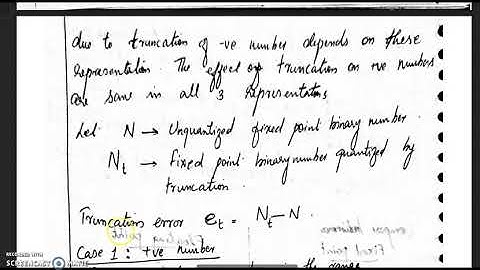 due to truncation of -ve number depends on these
representation. The effect of truncation on +ve numbers
are same in all 3 representations
Let N → Unquantized fixed point binary number
Nt → fixed point binary number quantized by
truncation.
Truncation error et = Nt - N.
Case 1: +ve number
the range
RECORDED WITH
SCREENCAST MATIC